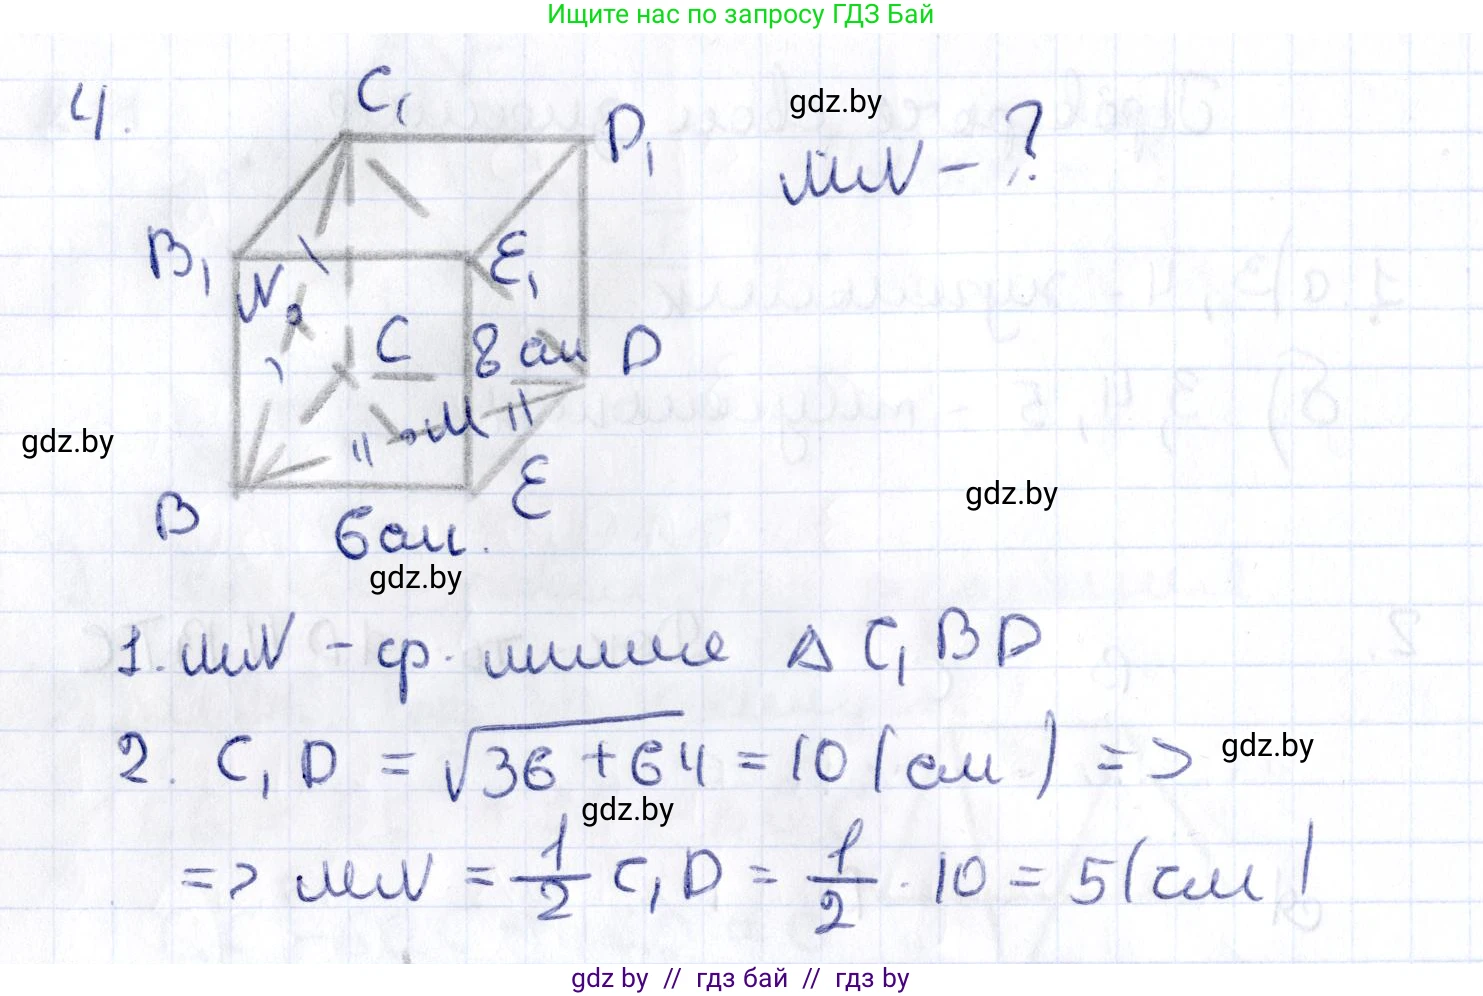 Ищите нас по запросу ГДЗ Бай
4.
C₁
D₁
gdz.by
MN - ?
B₁
E₁
N
C
8 см
D
M
gdz.by
gdz.by
B
E
6 см.
gdz.by
1. MN - ср. линия △ C₁BD
2. C₁D = √36 + 64 = 10 (см) =>
gdz.by
gdz.by
=> MN = 1/2 C₁D = 1/2 · 10 = 5 (см)
gdz.by // гдз бай // гдз by